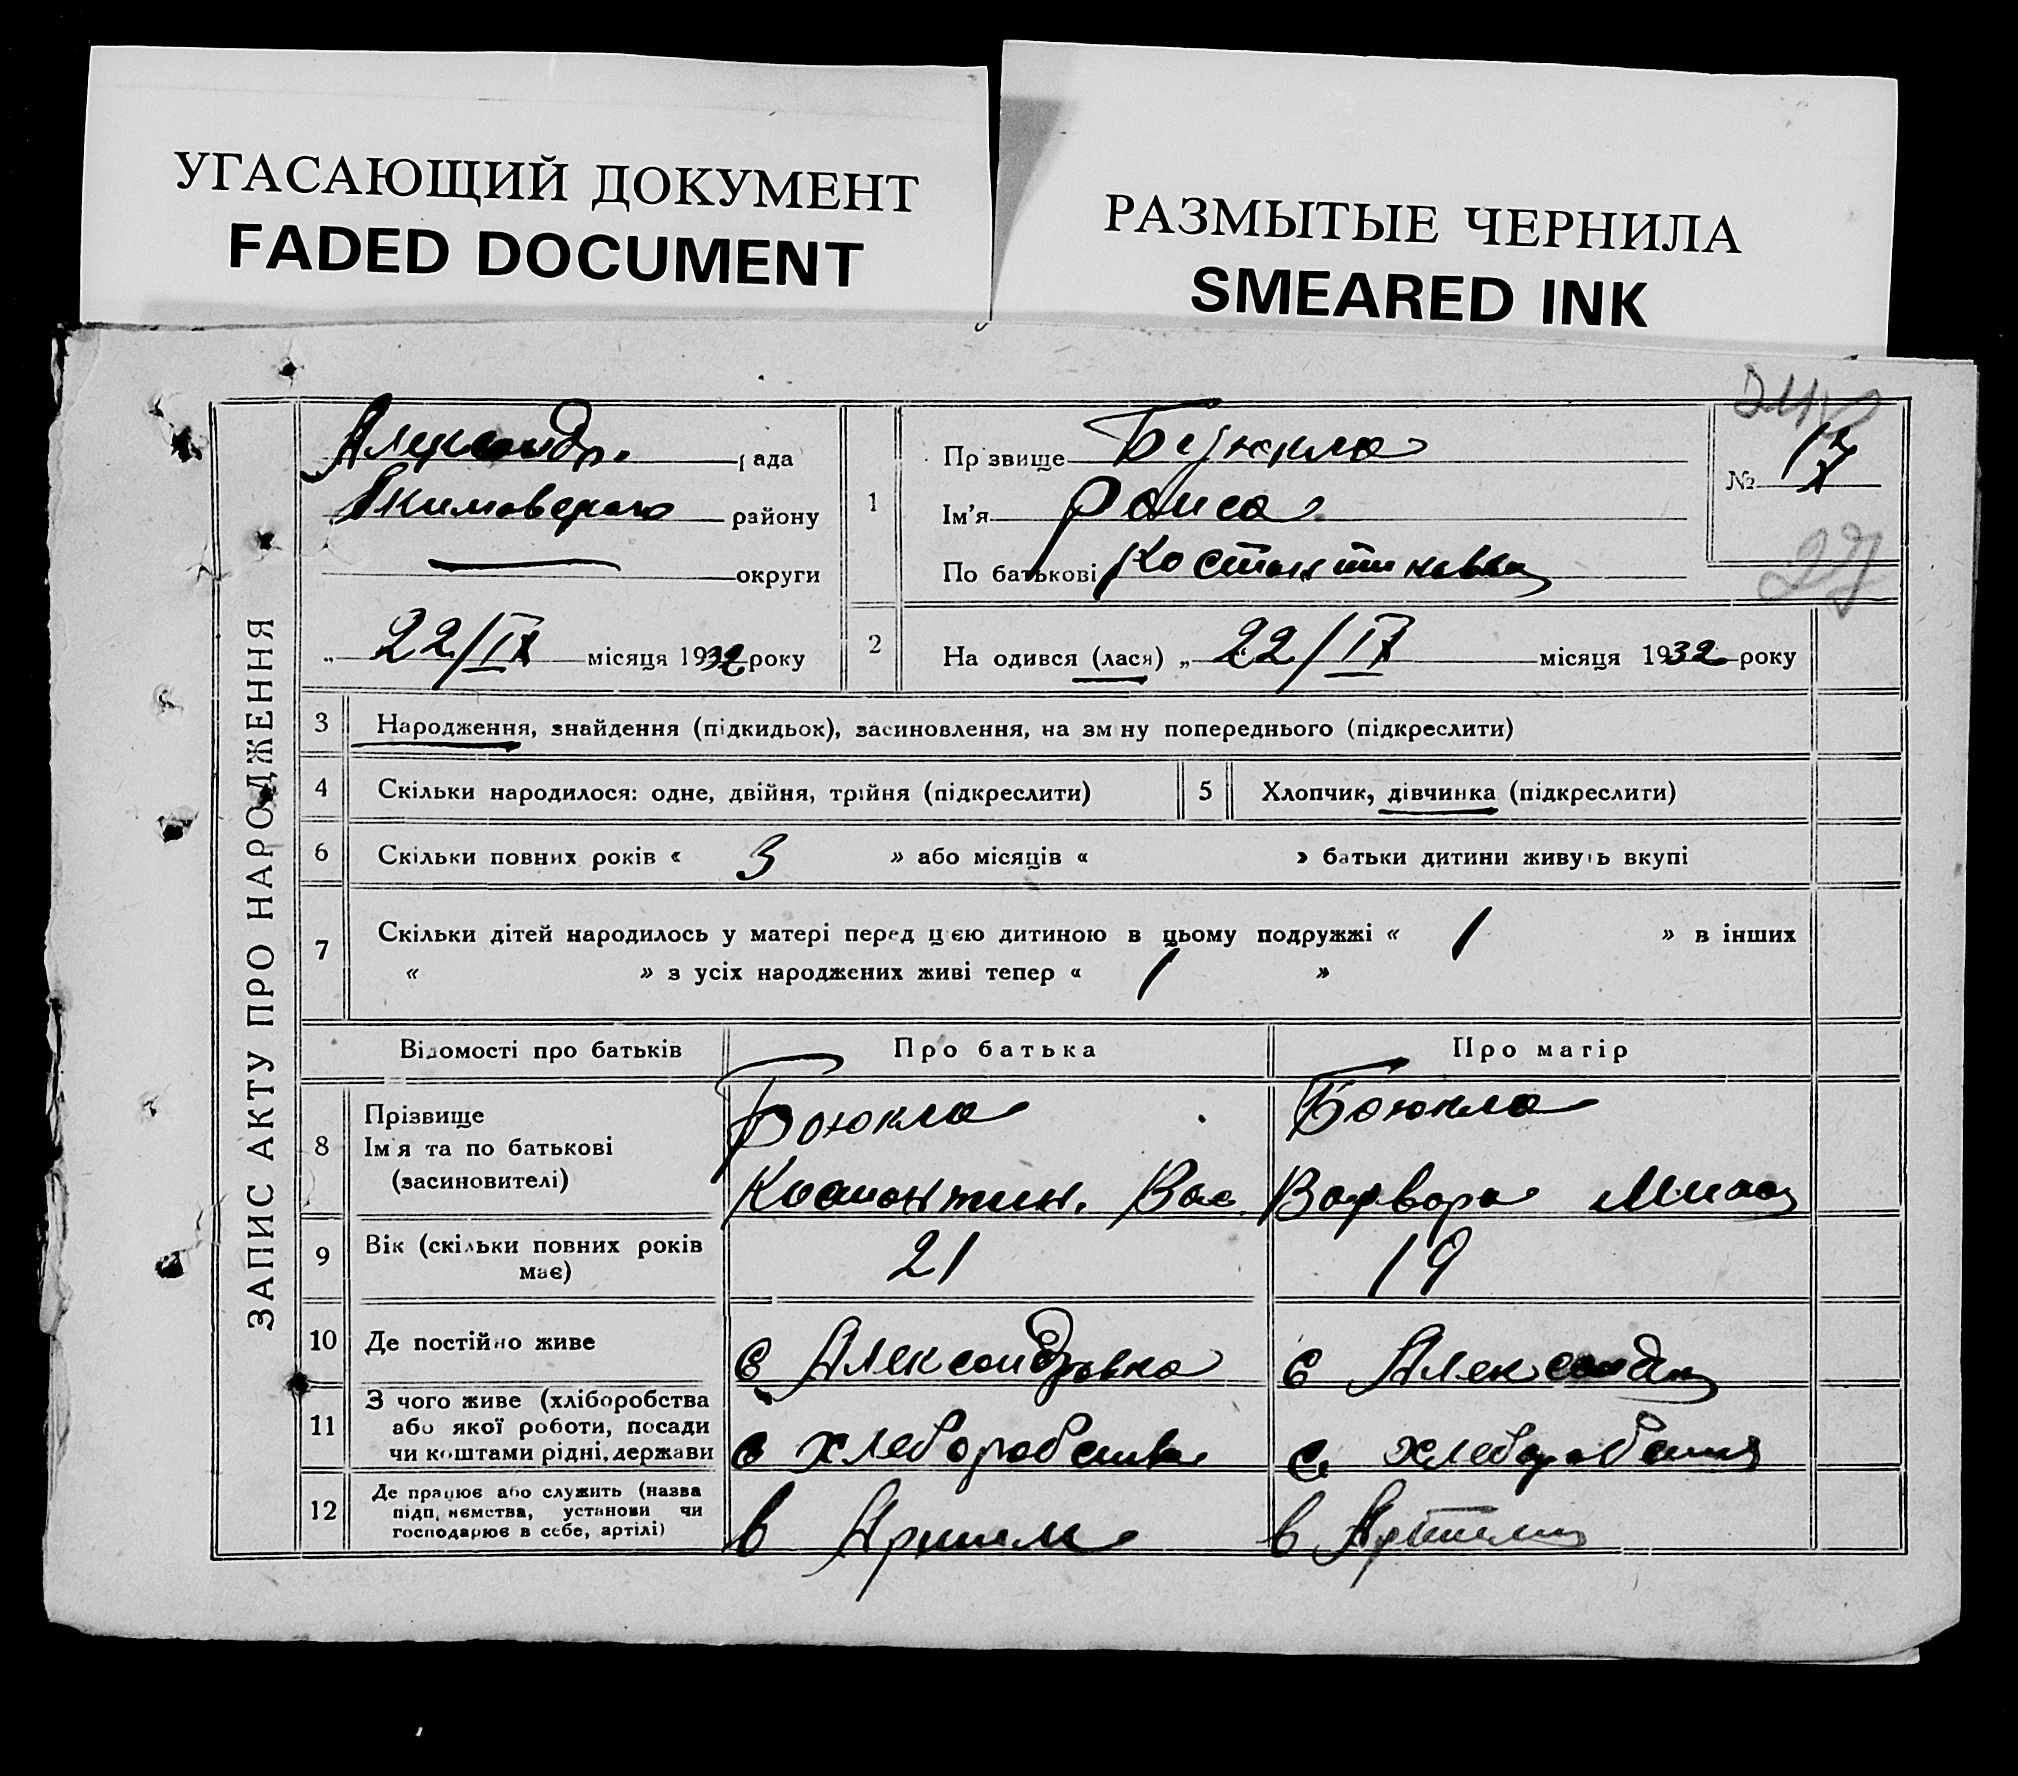 УГАСАЮЩИЙ ДОКУМЕНТ
FADED DOCUMENT
РАЗМЫТЫЕ ЧЕРНИЛА
SMEARED INK
ЗАПИС АКТУ ПРО НАРОДЖЕННЯ
Александр. рада
Якимовского району
— округи
„ 22/IX місяця 1932 року
1
Прізвище
Ім'я Раиса
По батькові Костантиновна
№ 17
27
2 Народився (лася) „ 22/IX місяця 1932 року
3 Народження, знайдення (підкидьок), засиновлення, на зміну попереднього (підкреслити)
4 Скільки народилося: одне, двійня, трійня (підкреслити)
5 Хлопчик, дівчинка (підкреслити)
6 Скільки повних років « 3 » або місяців « » батьки дитини живуть вкупі
7 Скільки дітей народилось у матері перед цією дитиною в цьому подружжі « 1 » в інших
« » з усіх народжених живі тепер « 1 »
Відомості про батьків Про батька Про матір
8 Прізвище Боюкла Боюкла
Ім'я та по батькові
(засиновителі) Костантин. Вас. Варвара
9 Вік (скільки повних років 21 19
має)
10 Де постійно живе с Александровка с Александр
11 З чого живе (хліборобства
або якої роботи, посади
чи коштами рідні, держави с хлеборобства с хлеборобства
12 Де працює або служить (назва
підприємства, установи чи
господарює в себе, артілі) в Артели в Артели